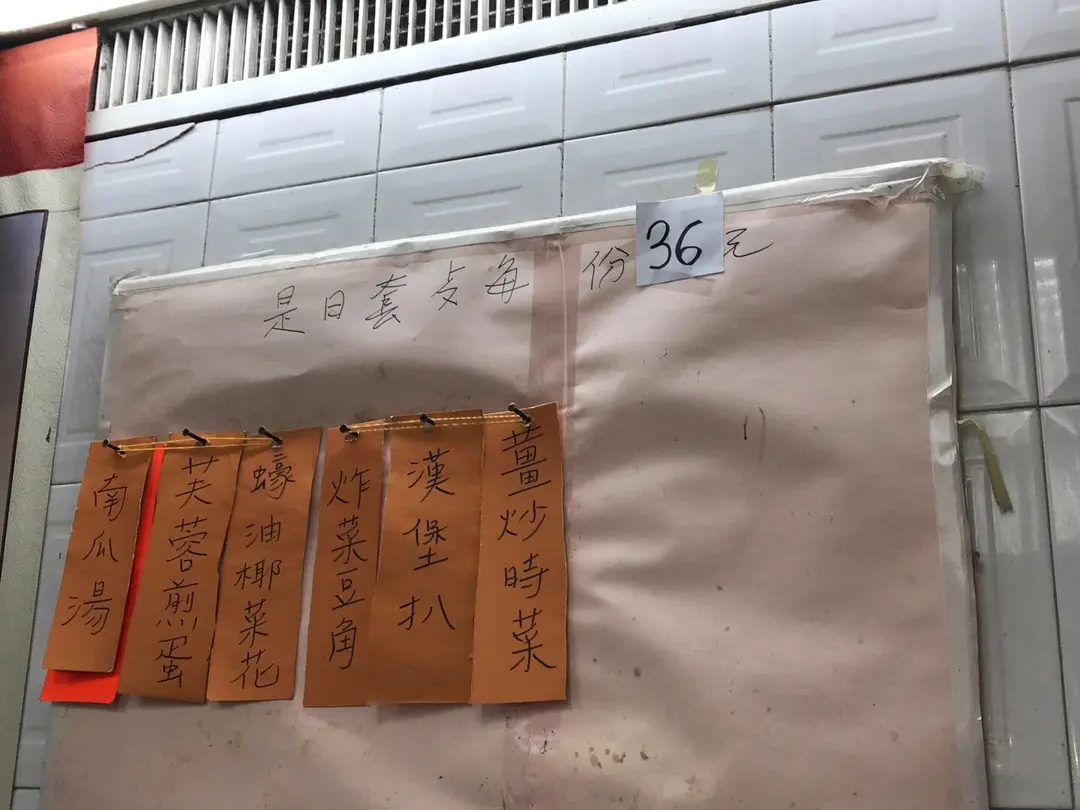 是日套歺每份36元
薑炒時菜
漢堡扒
炸菜豆角
蠔油椰菜花
芙蓉煎蛋
南瓜湯